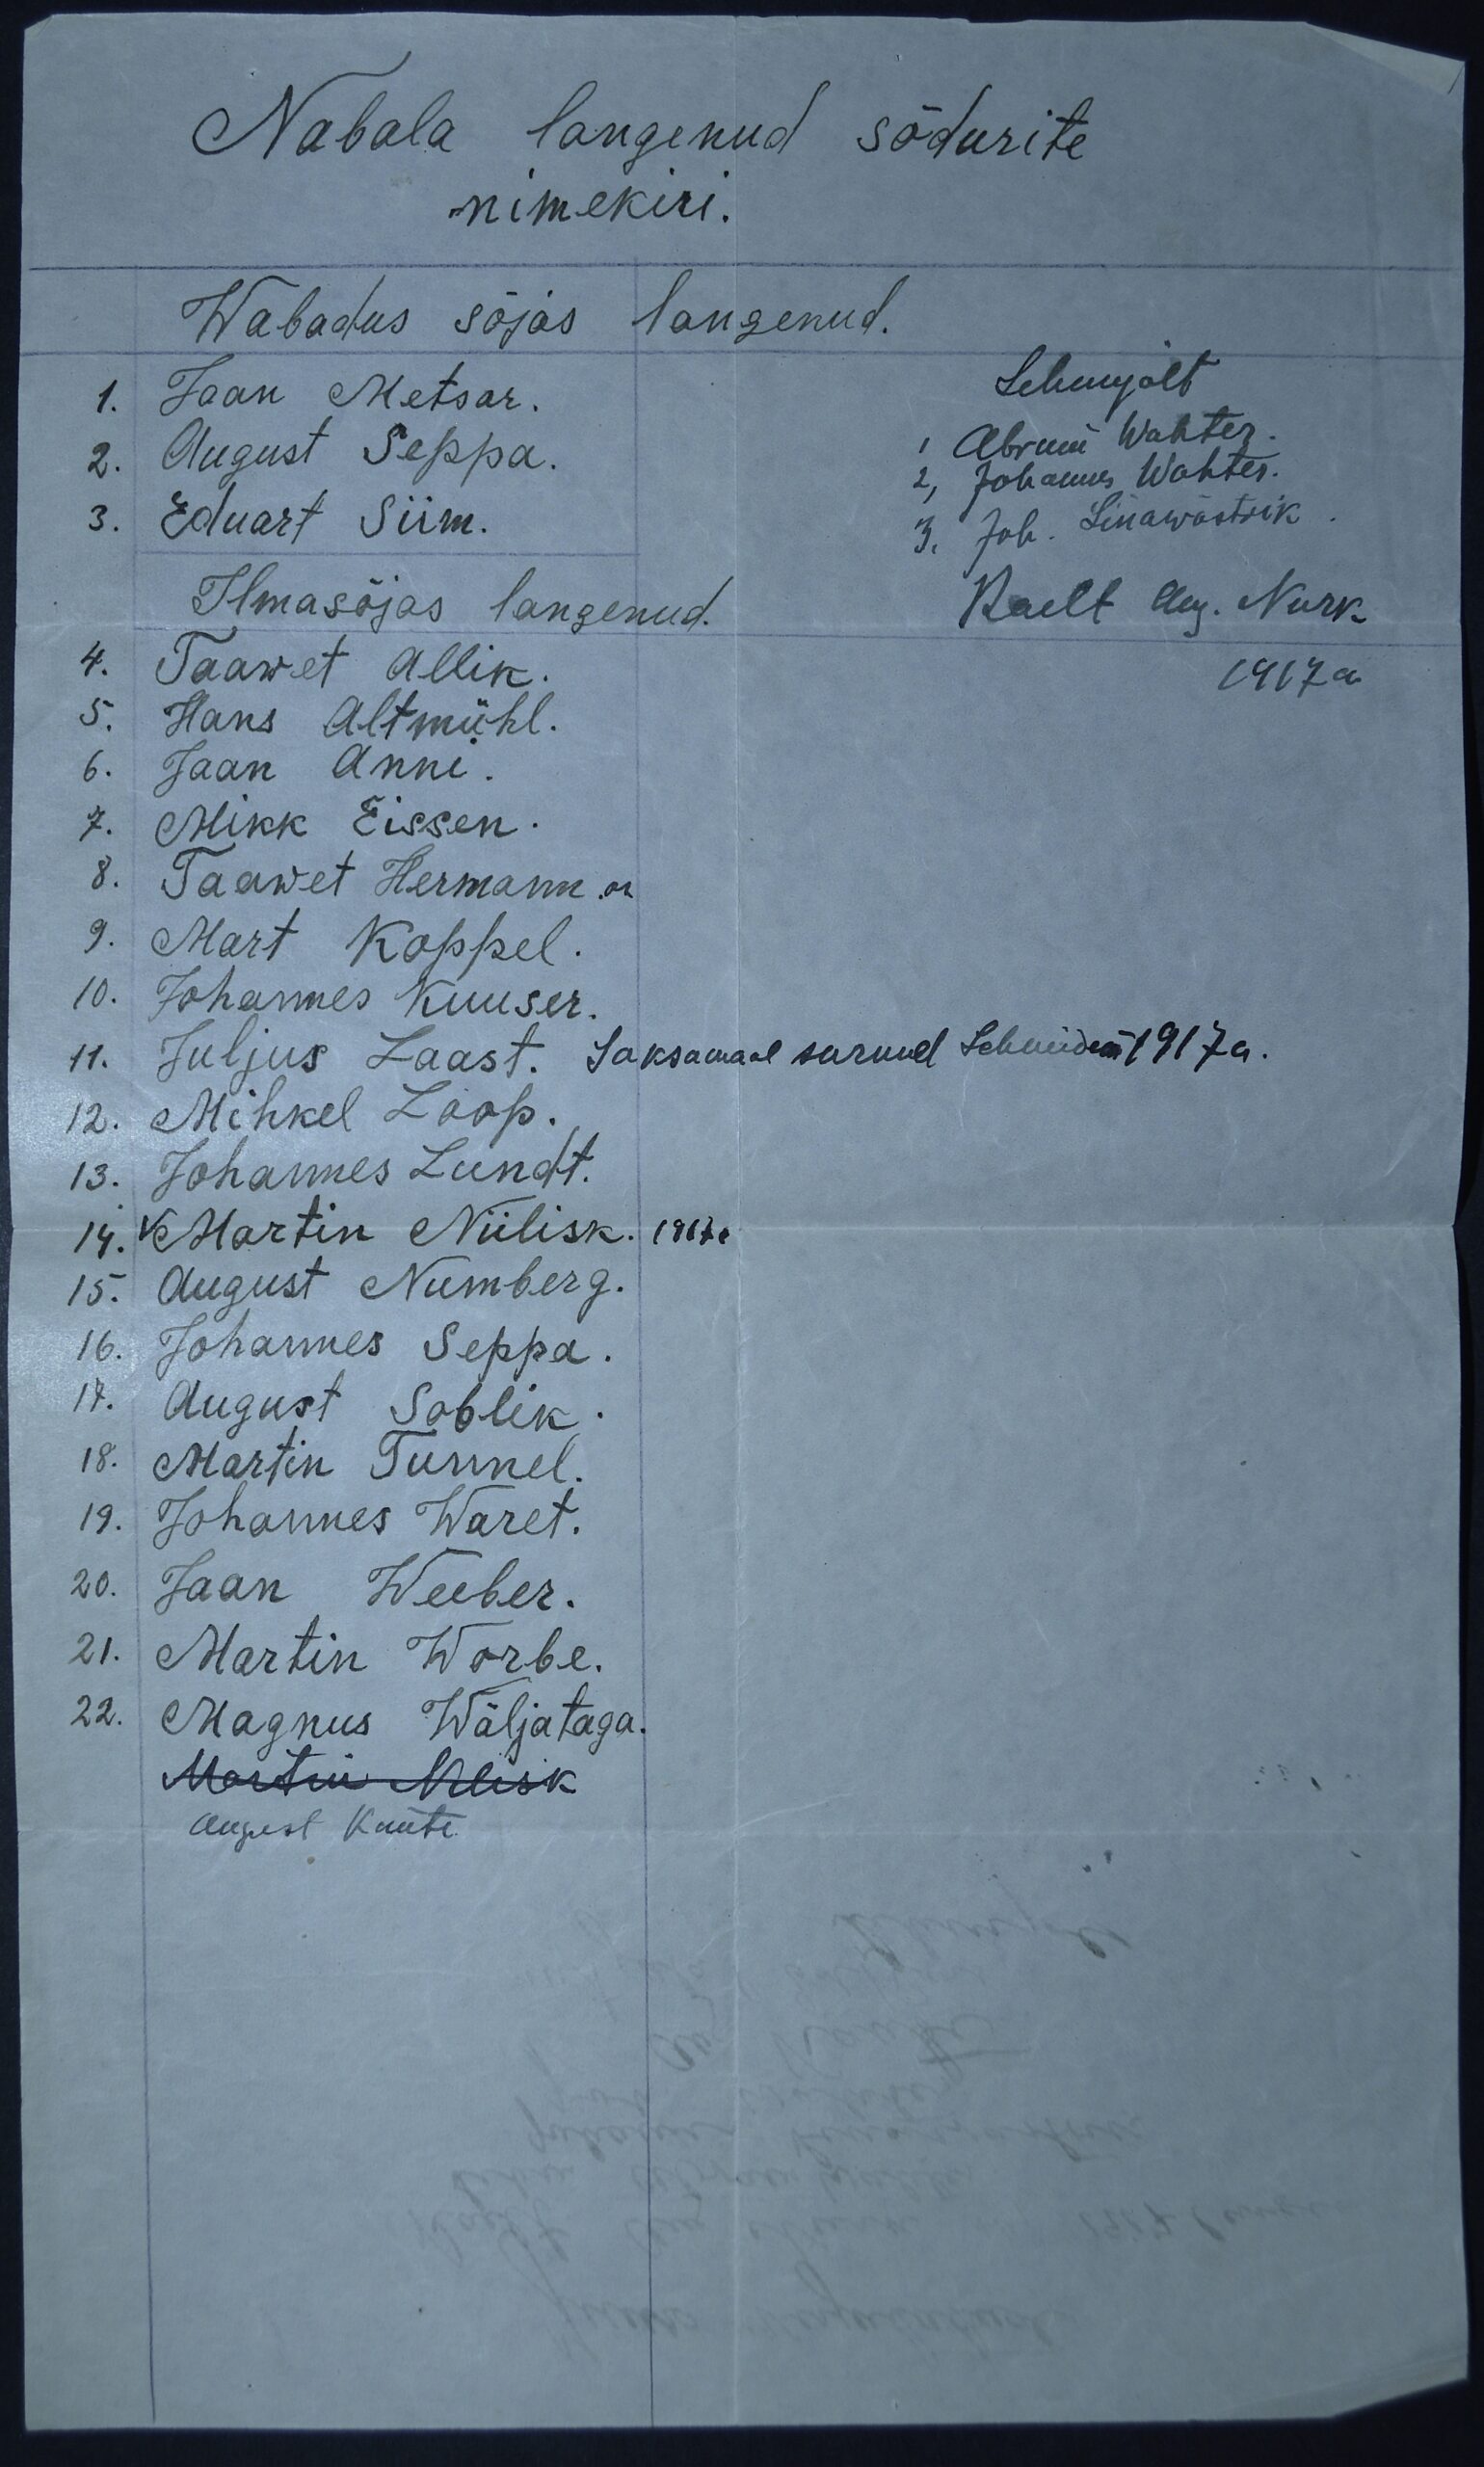 Nabala langenud sõdurite
nimekiri.
Wabadus sõjas langenud.
1. Jaan Metsar.
2. August Seppa.
3. Eduart Siim.
Ilmasõjas langenud.
4. Taawet Allik.
5. Hans Altmühl.
6. Jaan Anni.
7. Mikk Eissen.
8. Taawet Hermann.
9. Mart Koppel.
10. Johannes Kuuser.
11. Juljus Laast. Saksamaal surnud 1917a.
12. Mihkel Loop.
13. Johannes Lundt.
14. Martin Niilisk. 1917a
15. August Numberg.
16. Johannes Seppa.
17. August Soblik.
18. Martin Tunnel.
19. Johannes Waret.
20. Jaan Weeber.
21. Martin Worbe.
22. Magnus Wäljataga.
Martin
August
1 Wahter.
2, Johannes Wahter.
3. Joh. Linawästrik.
Raelt Aug. Nurk
1917a